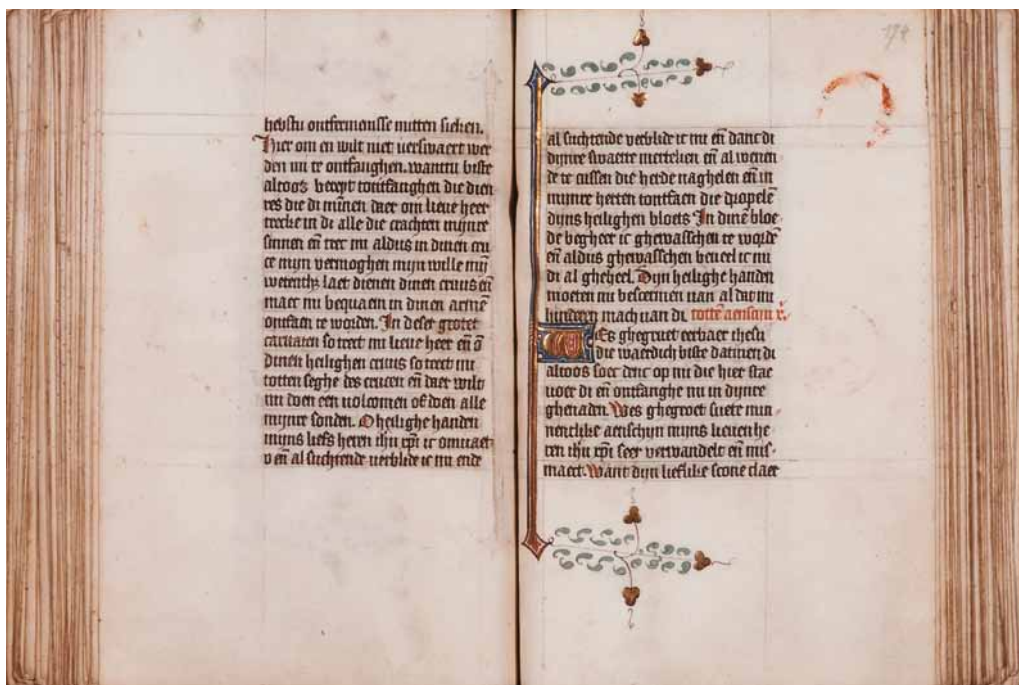 hebstu ontfermenisse mitten sieken.
Hier om en wilt niet verswaert wer
den mi te ontfanghen. wanttu biste
altoos bereyt tontfanghen die dien
res die di minnen daer om lieue heer
trecke in di alle die crachten mijnre
sinnen en̄ trec mi aldus in dinen cru
ce mijn vermoghen mijn wille mijn
wetenth laet dienen dinen cruus en̄
maec mi bequaem in dinen armē
ontfaen te worden. In deser groter
caritaten so trect mi lieue heer en̄ o
dinen heilighen cruus so trect mi
totten seghe des crucen en̄ daer wilt
mi doen een volcomen of doen alle
mijnre sonden. O heilighe handen
mijns liefs heren ihū xp̄i ic omuaet
v en̄ al suchtende verblide ic mi ende
174
al suchtende verblide ic mi en̄ danc di
dijnre swaerre mertelien en̄ al wenen
de te cussen die herde naghelen en̄ in
mijnre herten tontfaen die dropelē
dijns heilighen bloets In dinē bloe
de beghere ic ghewasschen te wordē
en̄ aldus ghewasschen beueel ic mi
di al gheheel. Dijn heilighe handen
moeten mi bescermen van al dat mi
hinderen mach van di. totten aensijn x̄.
Wes ghegruet eerbaer ihesu
die waerdich biste datmen di
altoos soec denc op mi die hier stae
voer di en̄ ontfanghe mi in dijnre
ghenaden. Wes ghegroet suete min
nentlike aenschijn mijns lieuen he
ren ihū xp̄i seer verwandelt en̄ mis
maect. Want dijn lieflike scone claer